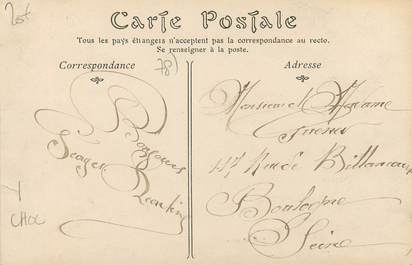 20f
Carte Postale
Tous les pays étrangers n'acceptent pas la correspondance au recto.
Se renseigner à la poste.
Correspondance
78)
Adresse
Bonjours
Monsieur et Madame
117 Rue de Billancourt
Boulogne
Seine
Choc